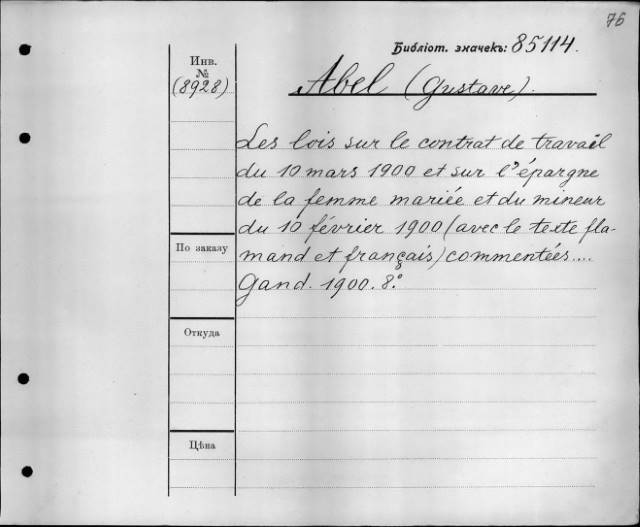 76
Библіот. значекъ: 85114.
Инв.
№
(8928)
Abel (Gustave).
Les lois sur le contrat de travail
du 10 mars 1900 et sur l'épargne
de la femme mariée et du mineur
du 10 février 1900 (avec le texte fla-
mand et français) commentées....
Gand. 1900. 8°.
По заказу
Откуда
Цѣна